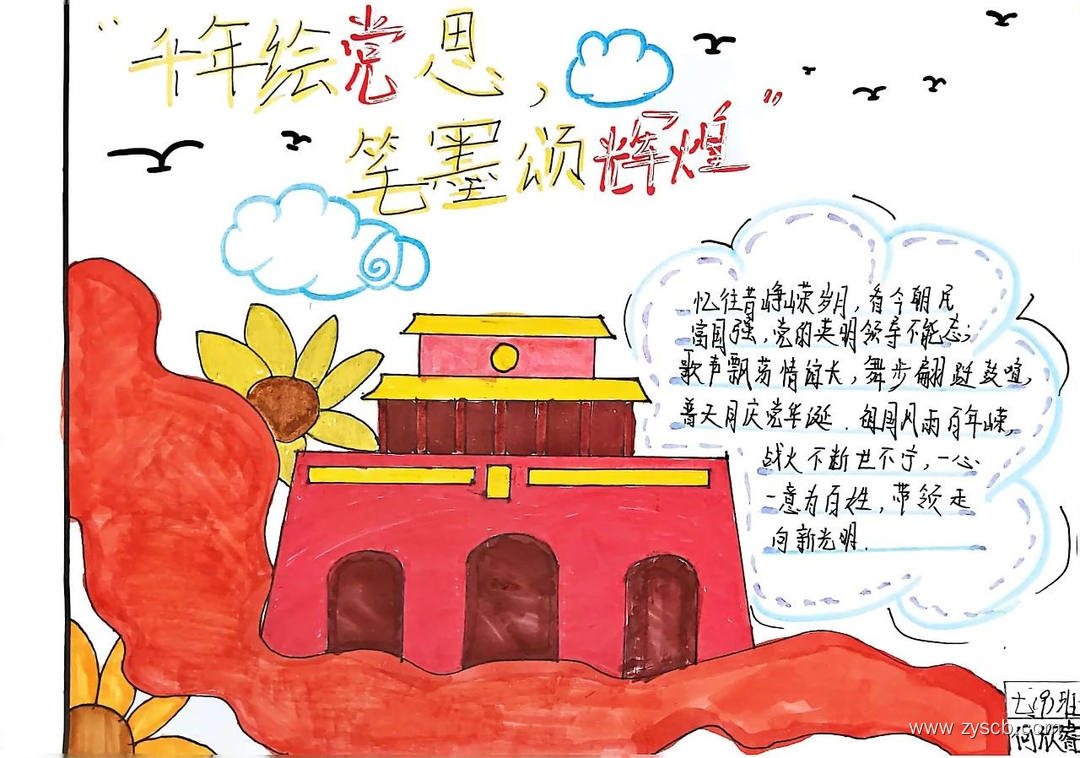 “千年绘党恩，
笔墨颂辉煌”
忆往昔峥嵘岁月，看今朝民
富国强，党的英明领导不能忘；
歌声飘荡情谊长，舞步翩跹鼓喧，
普天同庆党华诞．祖国风雨百年嵘，
战火不断世不宁，一心
一意为百姓，带领走
向新光明．
班
www.zyscb.com
何欣